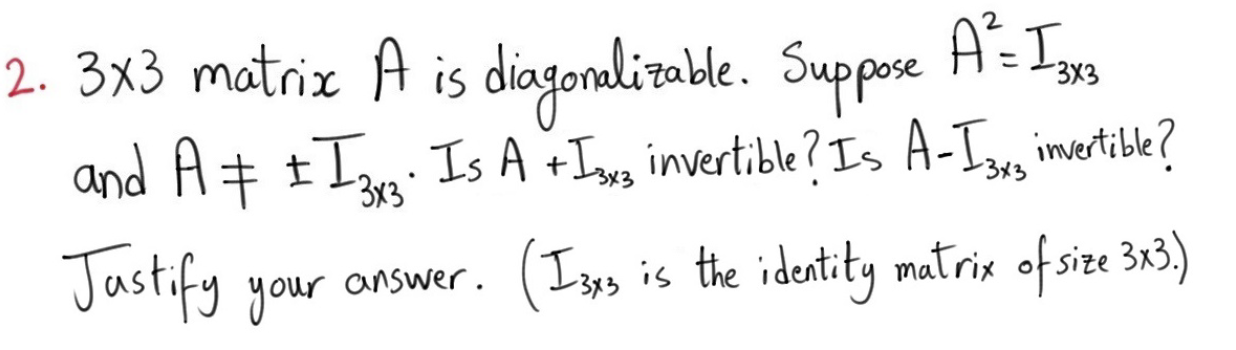 2. 3x3 matrix A is diagonalizable. Suppose A²=I₃ₓ₃
and A ≠ ±I₃ₓ₃. Is A +I₃ₓ₃ invertible? Is A-I₃ₓ₃ invertible?
Justify your answer. (I₃ₓ₃ is the identity matrix of size 3x3.)